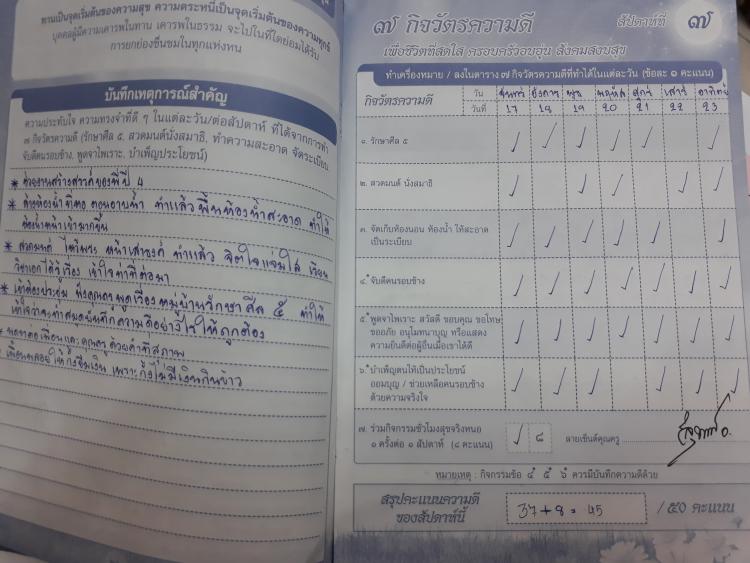 ทานเป็นจุดเริ่มต้นของความสุข ความตระหนี่เป็นจุดเริ่มต้นของความทุกข์
บุคคลผู้มีความเคารพในทาน เคารพในธรรม จะไปในที่ใดย่อมได้รับ
การยกย่องชื่นชมในทุกแห่งหน
บันทึกเหตุการณ์สำคัญ
ความประทับใจ ความทรงจำที่ดี ๆ ในแต่ละวัน/ต่อสัปดาห์ ที่ได้จากการทำ
๗ กิจวัตรความดี (รักษาศีล ๕, สวดมนต์นั่งสมาธิ, ทำความสะอาด จัดระเบียบ
จับดีคนรอบข้าง, พูดจาไพเราะ, บำเพ็ญประโยชน์)
* ช่วยงานสร้างสรรค์ของพี่ปี 4
* ล้างห้องน้ำที่หอ ตอนอาบน้ำ ทำแล้วพื้นห้องน้ำสะอาด ทำให้
ห้องน้ำน่าเข้ามากขึ้น
* สวดมนต์ ไหว้พระ หน้าเสาธงค์ ทำแล้ว จิตใจแจ่มใส เรียน
วิชาเอกได้รู้เรื่อง เข้าใจ
* เข้าห้องประชุม ฟังคุณครูพูดเรื่องหมู่บ้านรักษาศีล ๕ ทำให้
เข้าใจว่าจะทำสมุดบันทึกความดีอย่างไรให้ถูกต้อง
* พูดจาต่อเพื่อนและคุณครูด้วยคำที่สุภาพ
ให้กิ๊งยืมเงิน เพราะกิ๊งไม่มีเงินกินข้าว
๗ กิจวัตรความดี
สัปดาห์ที่ ๗
เพื่อชีวิตที่สดใส ครอบครัวอบอุ่น สังคมสงบสุข
ทำเครื่องหมาย / ลงในตาราง ๗ กิจวัตรความดีที่ทำได้ในแต่ละวัน (ข้อละ ๑ คะแนน)
กิจวัตรความดี
วัน จันทร์ อังคาร พุธ พฤหัส ศุกร์ เสาร์ อาทิตย์
วันที่ 17 18 19 20 21 22 23
๑. รักษาศีล ๕
๒. สวดมนต์ นั่งสมาธิ
๓. จัดเก็บห้องนอน ห้องน้ำ ให้สะอาด
เป็นระเบียบ
๔.* จับดีคนรอบข้าง
๕.* พูดจาไพเราะ สวัสดี ขอบคุณ ขอโทษ
ขออภัย อนุโมทนาบุญ หรือแสดง
ความยินดีต่อผู้อื่นเมื่อเขาได้ดี
๖.* บำเพ็ญตนให้เป็นประโยชน์
ออมบุญ / ช่วยเหลือคนรอบข้าง
ด้วยความจริงใจ
๗. ร่วมกิจกรรมชั่วโมงสุขจริงหนอ
๑ ครั้งต่อ ๑ สัปดาห์ (๘ คะแนน)
๘ ลายเซ็นต์คุณครู
หมายเหตุ : กิจกรรมข้อ ๔* ๕* ๖* ควรมีบันทึกความดีด้วย
สรุปคะแนนความดี
ของสัปดาห์นี้
37 + 8 = 45
/ ๕๐ คะแนน